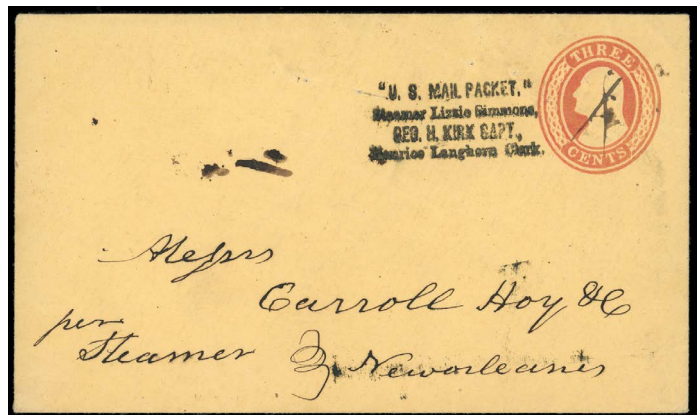 "U. S. MAIL PACKET."
Steamer Lizzie Simmons,
GEO. H. KIRK CAPT.,
Langhorn Clerk.
THREE
CENTS
Messrs
Carroll Hoy & C
per
Steamer
Neworleans